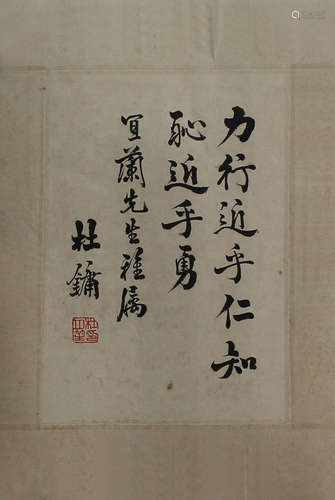 力行近乎仁知
恥近乎勇
宜蘭先生雅属
杜鏞